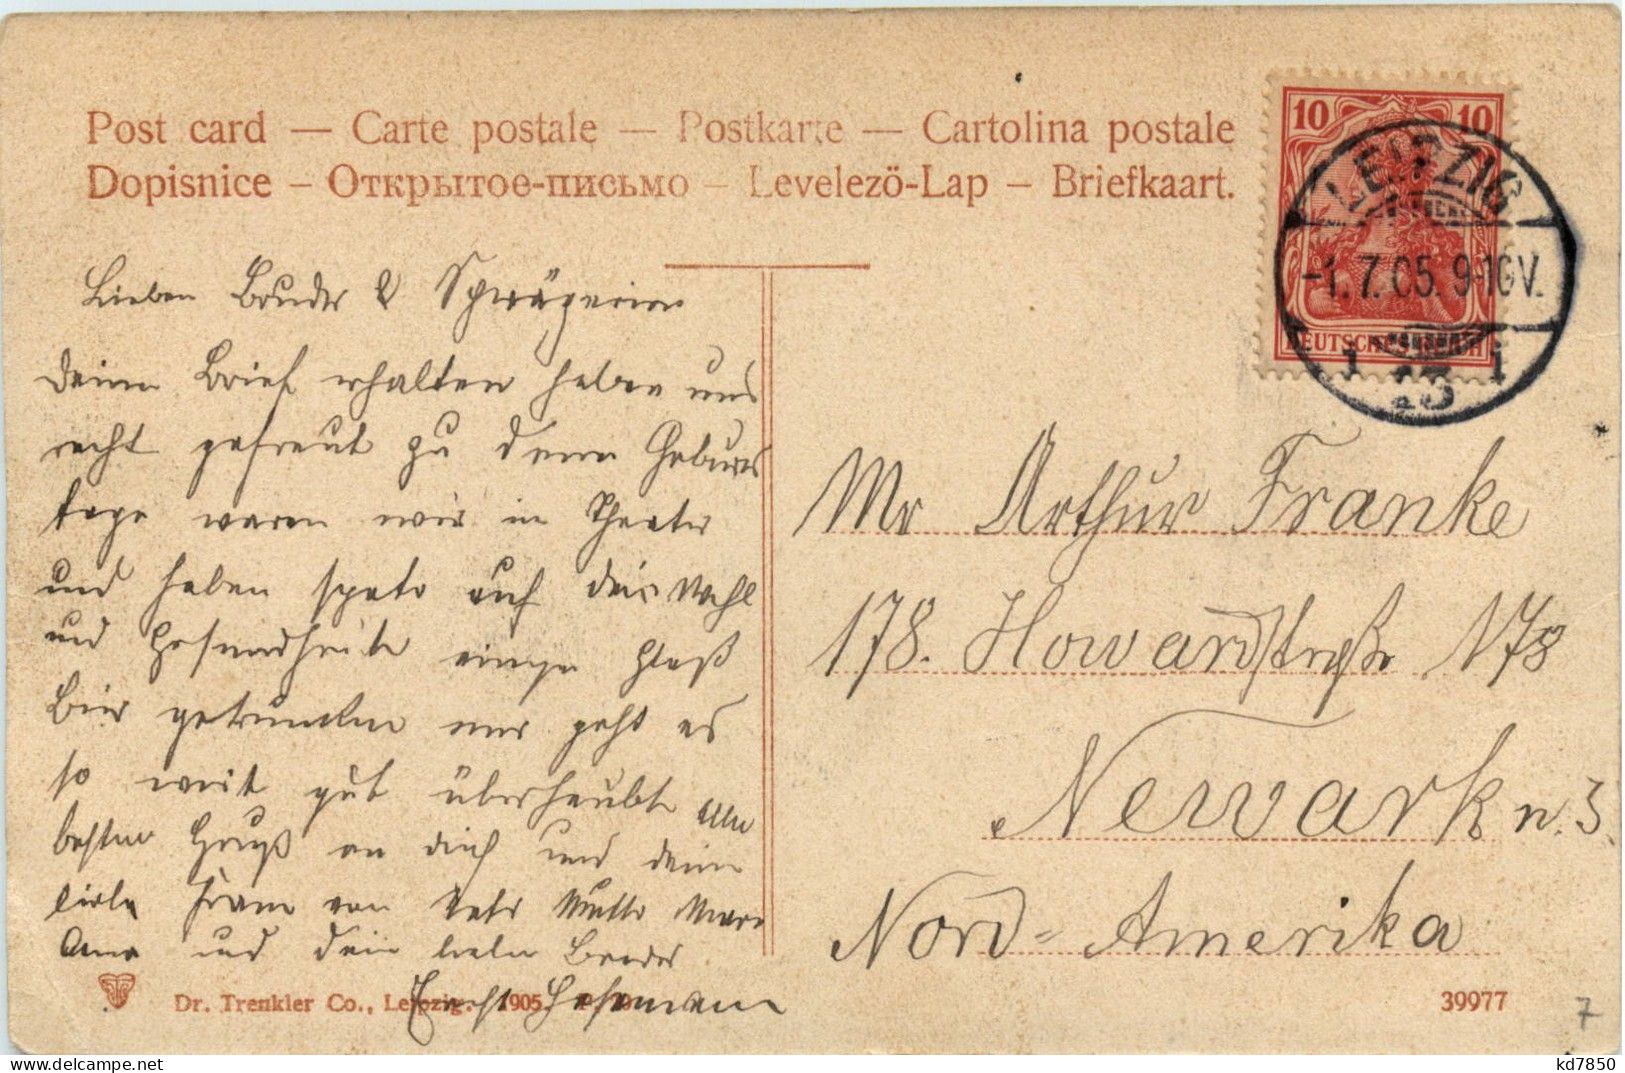 Post card — Carte postale — Postkarte — Cartolina postale
Dopisnice — Открытое-письмо — Levelezö-Lap — Briefkaart.
10 10
DEUTSCHES REICH
LEIPZIG
-1.7.05. 9-10V.
13
Lieben Bruder & Schwägerin
Deinen Brief erhalten haben uns
recht gefreut zu denn Geburts
tage waren wir in Theater
und haben spater auf dein Wohl
und Gesundheit einige Glaß
Bier getrunken mir geht es
so weit gut überhaubt allen
besten Gruß an dich und deine
liebe Frau von Vater Mutter
und dein lieber Bruder
Mr Arthur Franke
178. Howardstraße 178
Newark n. J.
Nord-Amerika
Dr. Trenkler Co., Leipzig. 1905.
39977
7
kd7850